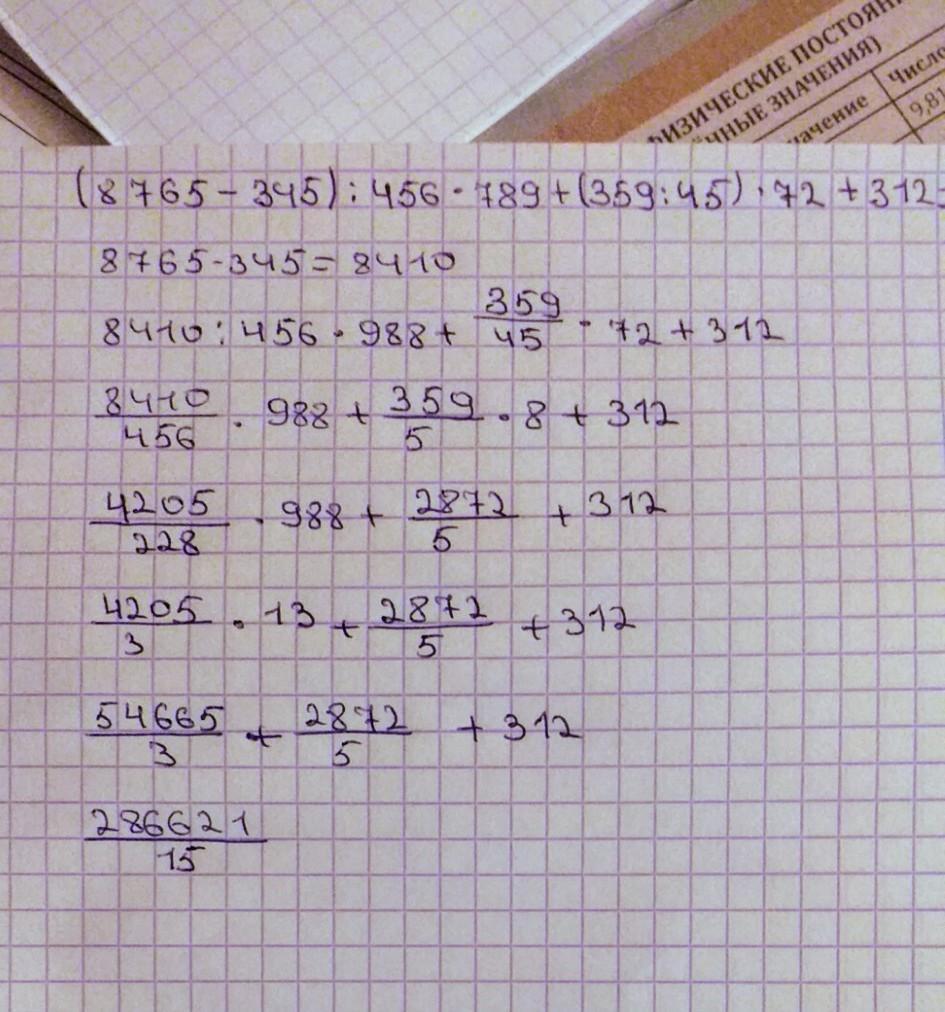 ФИЗИЧЕСКИЕ ПОСТОЯН
ЧЁННЫЕ ЗНАЧЕНИЯ)
начение
Число
9,81
(8765-345):456·789+(359:45)·72+312=
8765-345=8410
8410:456·988+359/45·72+312
8410/456·988+359/5·8+312
4205/228·988+2872/5+312
4205/3·13+2872/5+312
54665/3+2872/5+312
286621/15